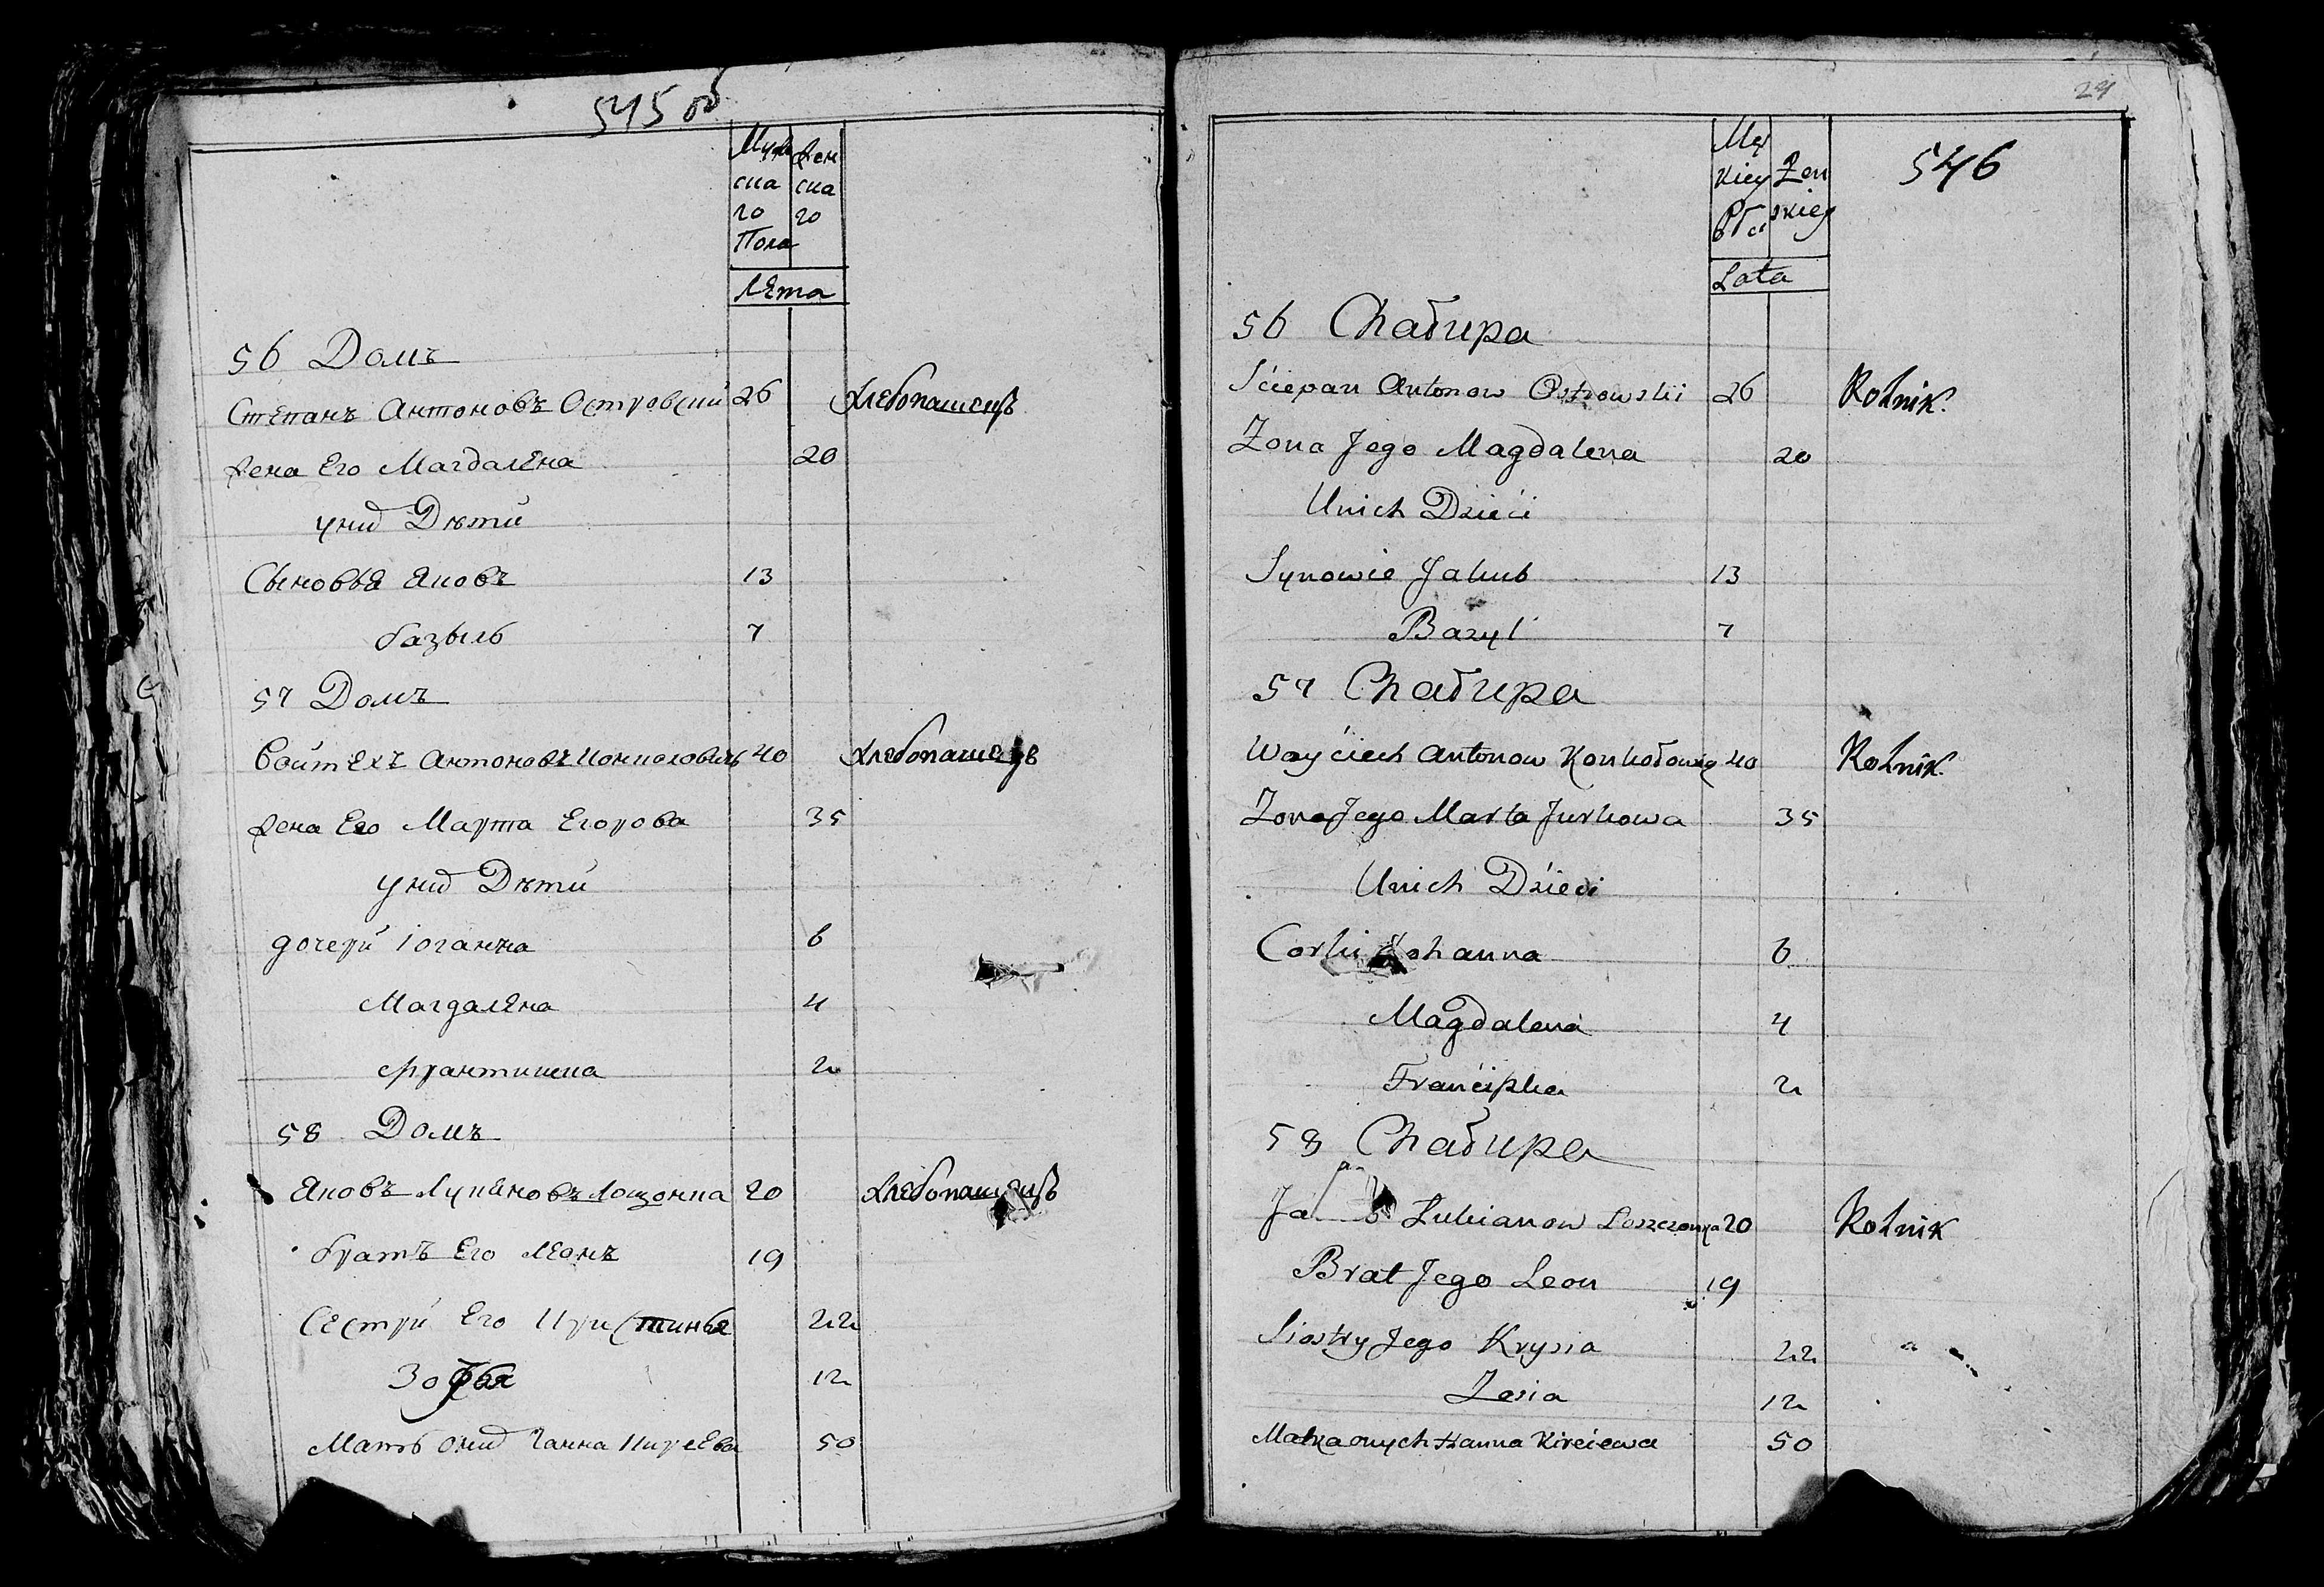 545 об
Мужскаго Пола
Женскаго
Лета
56 Домъ
Степанъ Антоновъ Островский 26 хлебопашецъ
жена Его Магдалена 20
у них Дѣти
Сыновья Яковъ 13
базыль 7
57 Домъ
Войтехъ Антоновъ Конколовичъ 40 хлебопашецъ
жена Его Марта Егорова 35
у них Дѣти
дочери Іоганна 6
Магдалена 4
франтишка 2
58 Домъ
Яковъ Лукяновъ Лощонка 20 хлебопашецъ
братъ Его Леонъ 19
Сестри Его Кристинья 22
Зофья 12
Мать оних Ганна Киреева 50
24
546
Męzkiey Płci
Zenskiey
Lata
56 Chałupa
Sciepan Antonow Ostrowski 26 Rolnik.
Zona Jego Magdalena 20
Unich Dzieci
Synowie Jakub 13
Bazyl 7
57 Chałupa
Woyciech Antonow Konkołowicz 40 Rolnik.
Zona Jego Marta Jurkowa 35
Unich Dzieci
Corki Johanna 6
Magdalena 4
Franciszka 2
58 Chałupa
Ja b Lukianow Loszczonka 20 Rolnik
Brat Jego Leon 19
Siostry Jego Krysia 22
Zosia 12
Matka onych Hanna Kireiewa 50